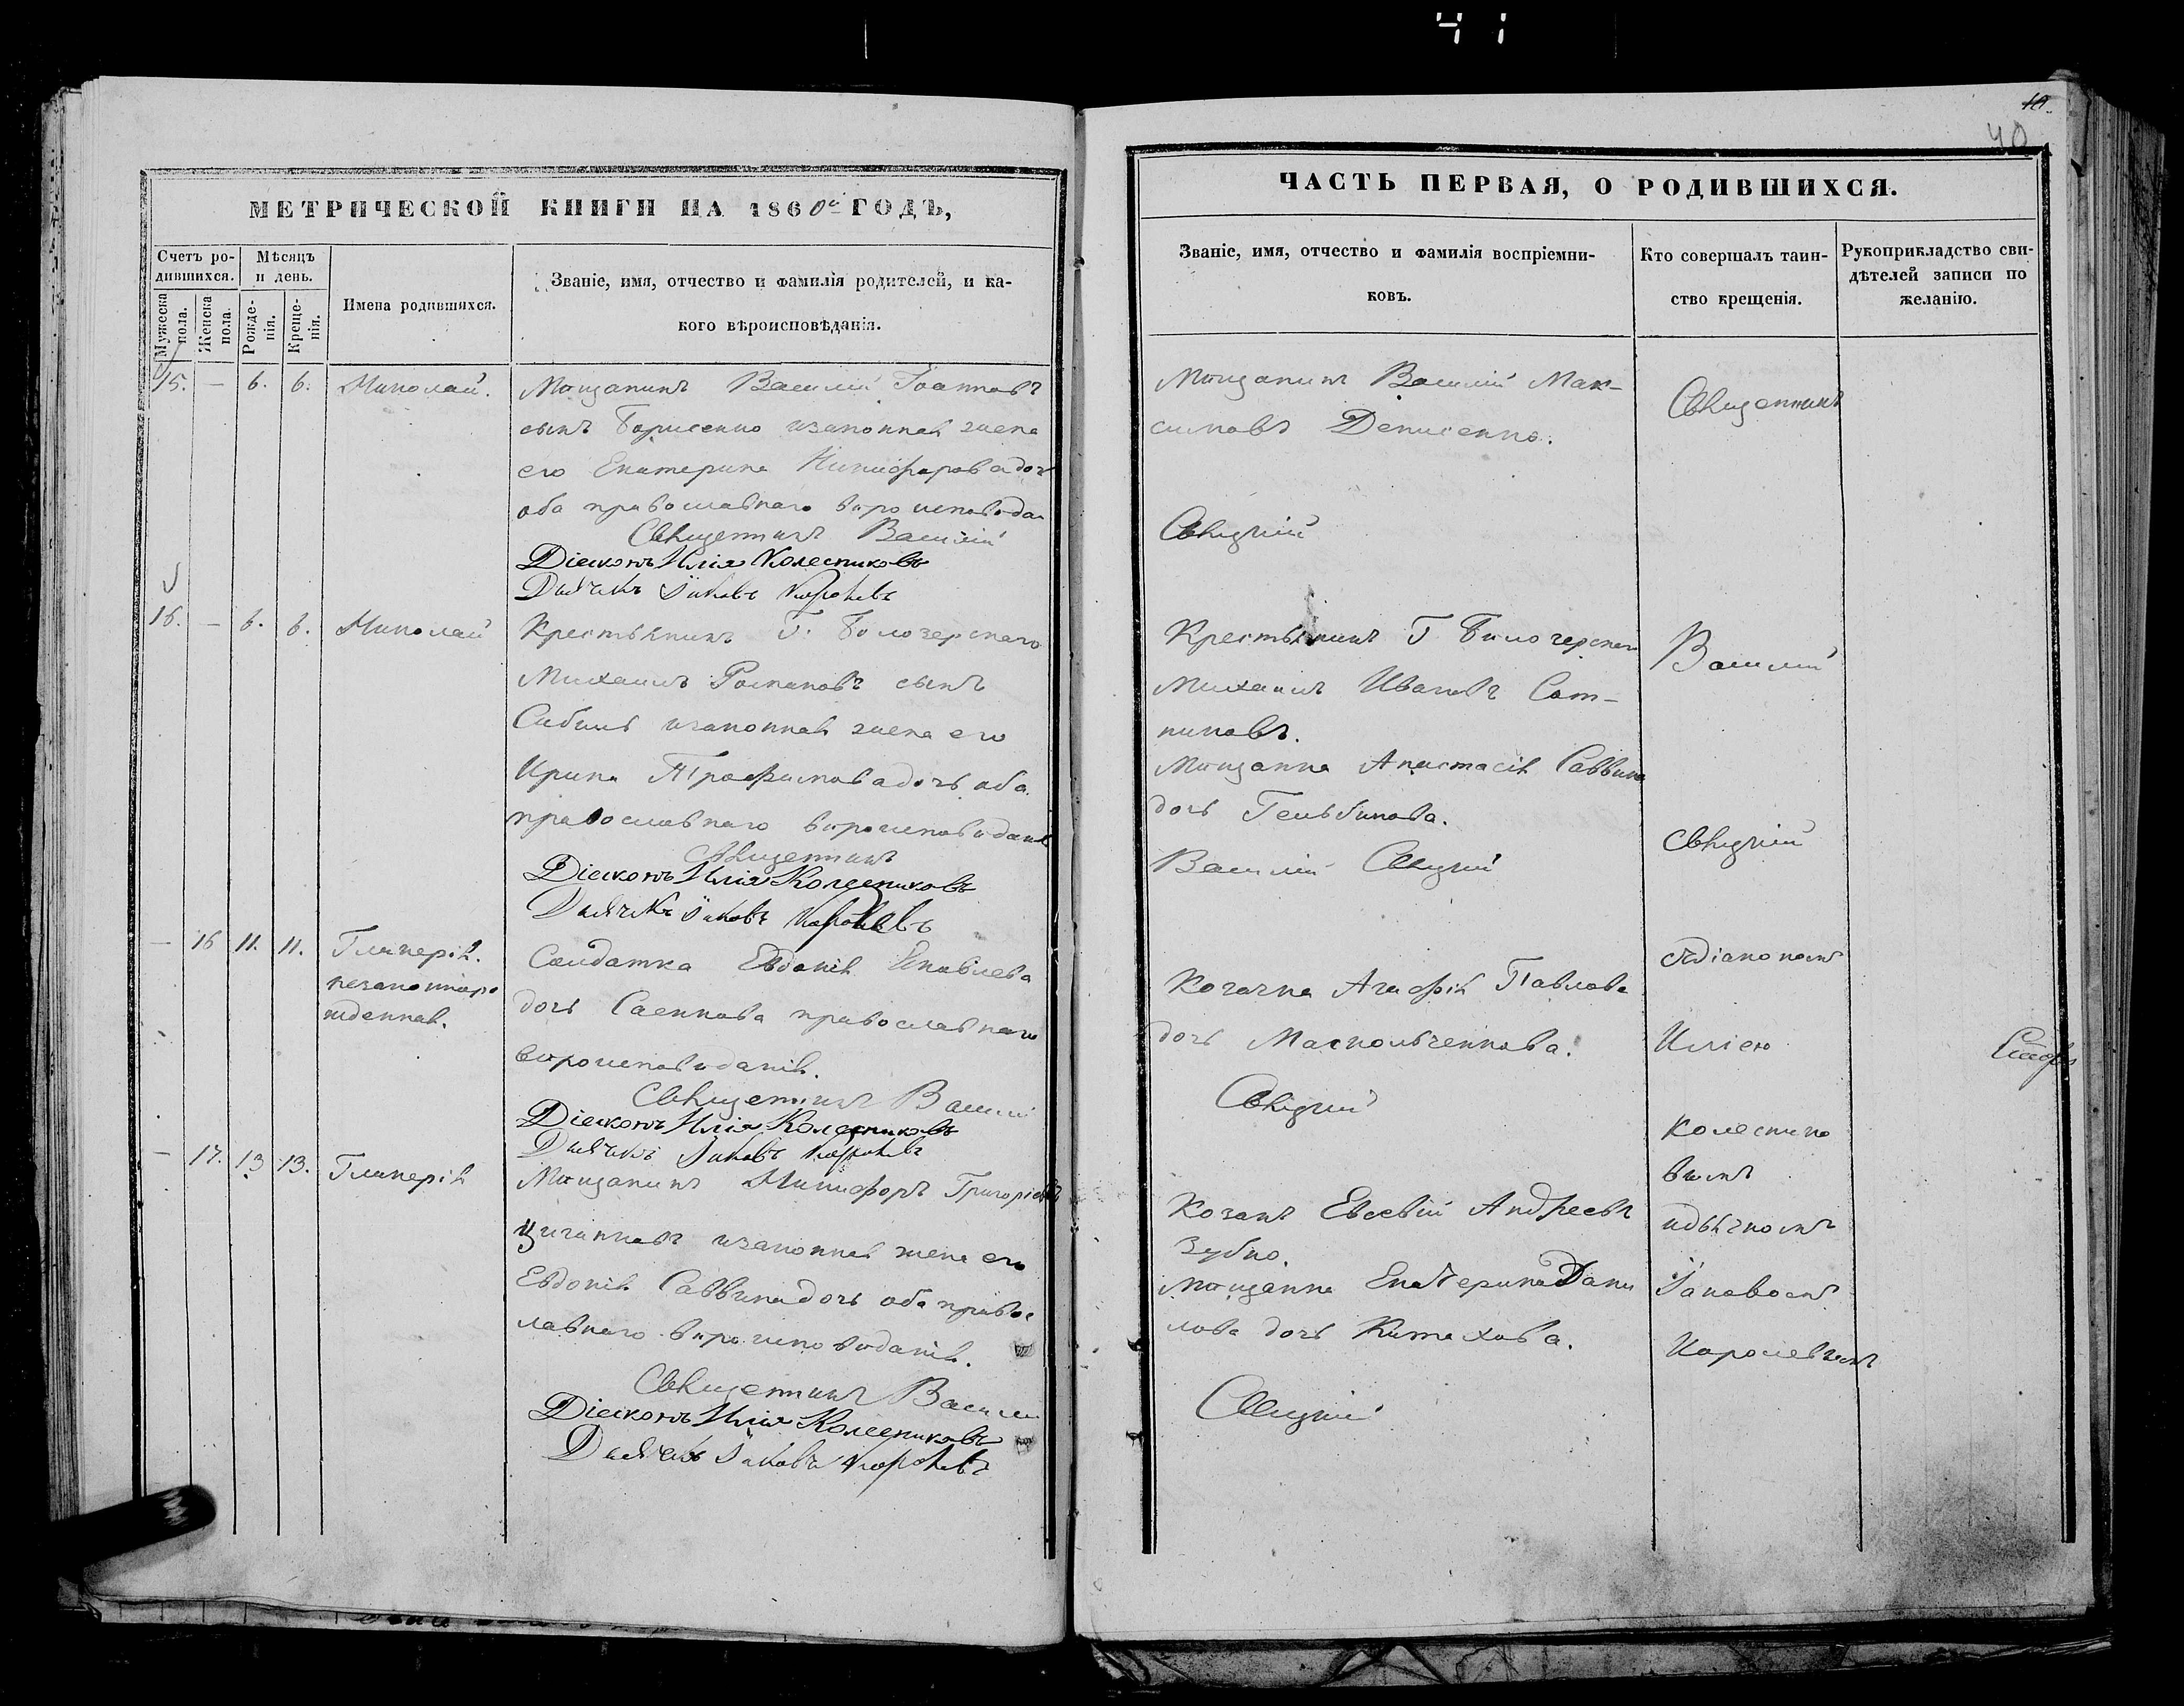 41
40
МЕТРИЧЕСКОЙ КНИГИ НА 1860й ГОДЪ,
Счетъ ро-
дившихся.
Мѣсяцъ
и день.
Мужеска
пола.
Женска
пола.
Рожде-
нія.
Креще-
нія.
Имена родившихся.
Званіе, имя, отчество и фамилія родителей, и ка-
кого вѣроисповѣданія.
15. — 6. 6. Николай.
Мѣщанинъ Василій Іоанновъ
сынъ Борисенко изаконная жена
его Екатерина Никифорова доч
оба православнаго вѣроисповѣдан
Священникъ Василій
Діаконъ Илія Колесниковъ
Дьячекъ Іаковъ Королевъ
16. — 6. 6. Николай
Крестьянинъ Г. Бѣлозерскаго
Михаилъ Романовъ сынъ
изаконная жена его
Ирина Трофимова дочь оба
православнаго вѣроисповѣданія
Священникъ
Діаконъ Илія Колесниковъ
Дьячекъ Іаковъ Королевъ
— 16 11. 11. Гликерія.
незаконноро
жденная.
Солдатка Евдокія Яковлева
дочь Саенкова православнаго
вѣроисповѣданія.
Священникъ Василій
Діаконъ Илія Колесниковъ
Дьячекъ Іаковъ Королевъ
— 17. 13 13. Гликерія
Мѣщанинъ Никифоръ Григоріевъ
изаконная жена его
Евдокія Саввина дочь оба правос
лавнаго вѣроисповѣданія.
Священникъ Василій
Діаконъ Илія Колесниковъ
Дьячекъ Іаковъ Королевъ
ЧАСТЬ ПЕРВАЯ, О РОДИВШИХСЯ.
Званіе, имя, отчество и фамилія воспріемни-
ковъ.
Кто совершалъ таин-
ство крещенія.
Рукоприкладство сви-
дѣтелей записи по
желанію.
Мѣщанинъ Василій Мак-
симовъ Денисенко.
Свяцкій
Крестьянинъ Г. Бѣлозерскаго
Михаилъ Ивановъ Сот-
никовъ.
Мѣщанка Анастасія Саввина
дочь
Василій Свяцкій
Козачка Агафія Павлова
дочь
Свяцкій
Козакъ Евсевій Андреевъ
Зубко.
Мѣщанка Екатерина Дани
лова дочь Китахова.
Свяцкій
Священникъ
Василій
Свяцкій
сдіакономъ
Иліею
Колеснико
вымъ
идьячкомъ
Іаковомъ
Королевымъ